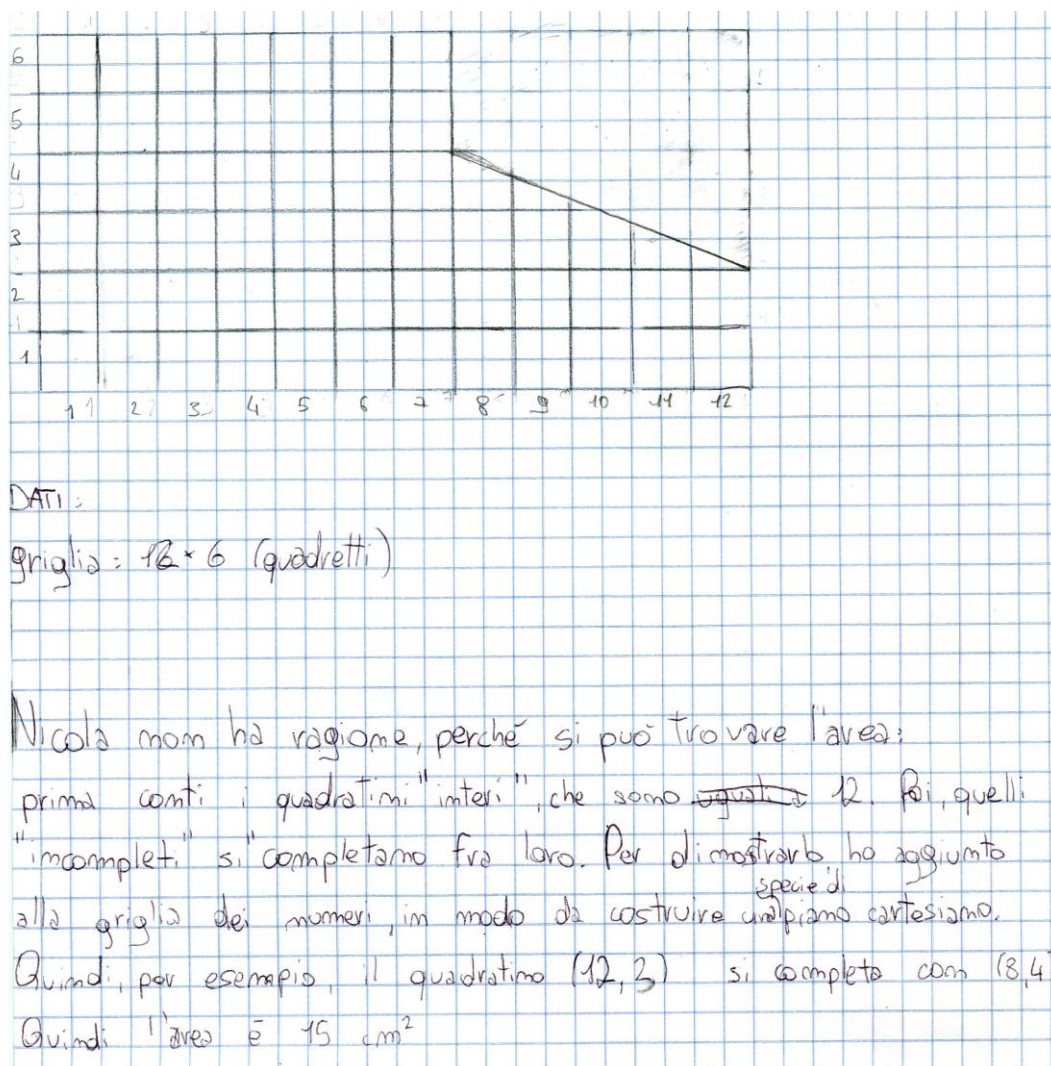 6
5
4
3
2
1
1 2 3 4 5 6 7 8 9 10 11 12
DATI:
griglia: 12 × 6 (quadretti)
Nicola non ha ragione, perché si può trovare l'area:
prima conti i quadratini "interi", che sono uguali a 12. Poi, quelli
"incompleti" si completano fra loro. Per dimostrarlo ho aggiunto
alla griglia dei numeri, in modo da costruire una specie di piano cartesiano.
Quindi, per esempio, il quadratino (12,3) si completa con (8,4
Quindi l'area è 15 cm²